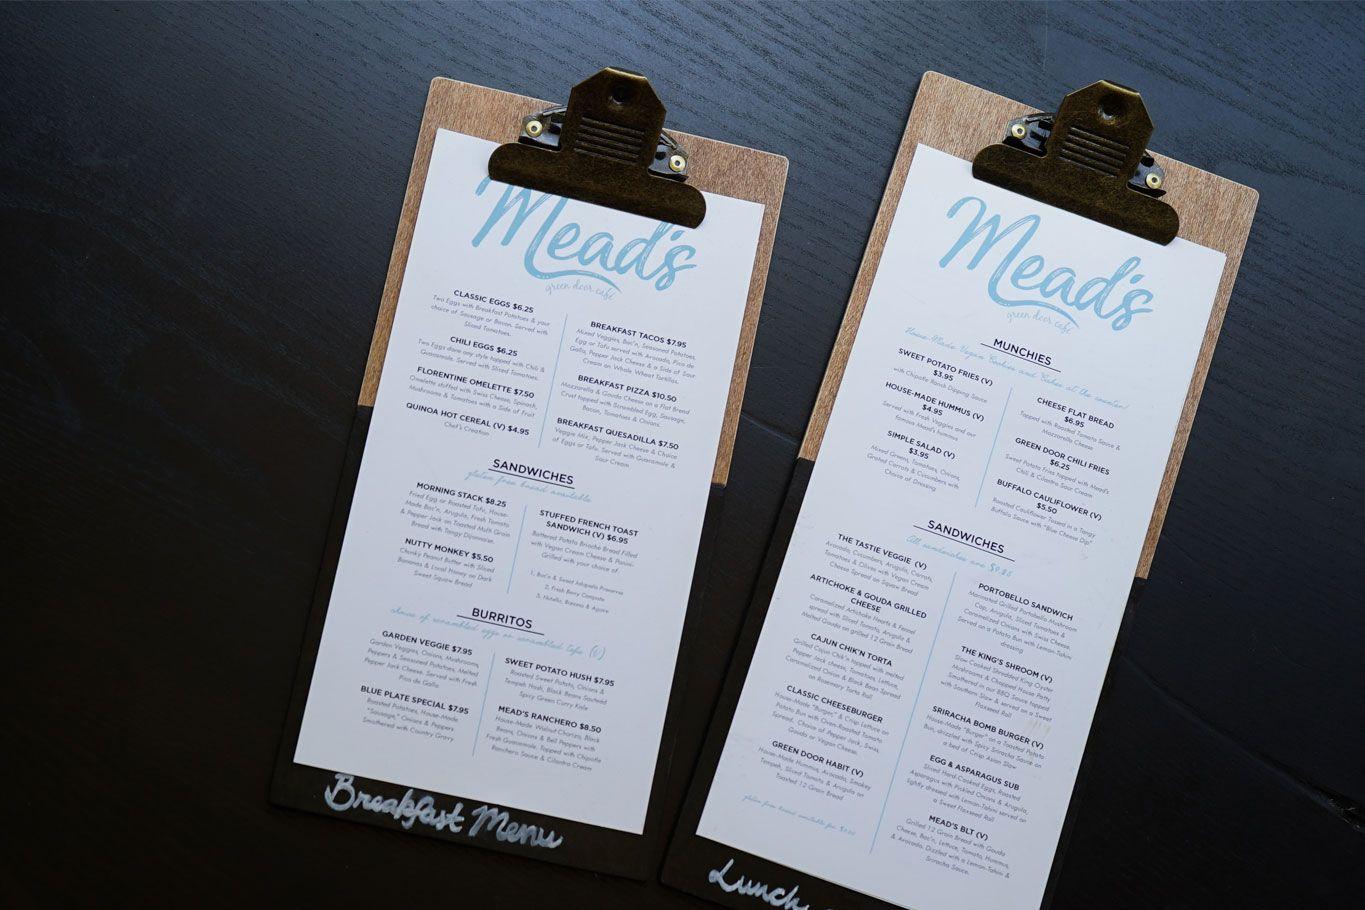 Mead's
green door cafe
CLASSIC EGGS $6.25
Two Eggs with Breakfast Potatoes & your
choice of Sausage or Bacon. Served with
Sliced Tomatoes.
CHILI EGGS $6.25
Two Eggs done any style topped with Chili &
Guacamole. Served with Sliced Tomatoes.
FLORENTINE OMELETTE $7.50
Omelette stuffed with Swiss Cheese, Spinach,
Mushrooms & Tomatoes with a Side of Fruit
QUINOA HOT CEREAL (V) $4.95
Chef's Creation
BREAKFAST TACOS $7.95
Mixed Veggies, Bac'n, Seasoned Potatoes,
Egg or Tofu served with Avocado, Pico de
Gallo, Pepper Jack Cheese & a Side of Sour
Cream on Whole Wheat Tortillas.
BREAKFAST PIZZA $10.50
Mozzarella & Gouda Cheese on a Flat Bread
Crust topped with Scrambled Egg, Sausage,
Bacon, Tomatoes & Onions.
BREAKFAST QUESADILLA $7.50
Veggie Mix, Pepper Jack Cheese & Choice
of Eggs or Tofu. Served with Guacamole &
Sour Cream
SANDWICHES
gluten free bread available
MORNING STACK $8.25
Fried Egg or Roasted Tofu, House-
Made Bac'n, Arugula, Fresh Tomato
& Pepper Jack on Toasted Multi Grain
Bread with Tangy Dijonnaise.
NUTTY MONKEY $5.50
Chunky Peanut Butter with Sliced
Bananas & Local Honey on Dark
Sweet Squaw Bread
STUFFED FRENCH TOAST
SANDWICH (V) $6.95
Battered Potato Brioche Bread Filled
with Vegan Cream Cheese & Panini-
Grilled with your choice of:
1. Bac'n & Sweet Jalapeño Preserves
2. Fresh Berry Compote
3. Nutella, Banana & Agave
BURRITOS
choice of scrambled eggs or scrambled tofu (V)
GARDEN VEGGIE $7.95
Garden Veggies, Onions, Mushrooms,
Peppers & Seasoned Potatoes, Melted
Pepper Jack Cheese. Served with Fresh
Pico de Gallo
BLUE PLATE SPECIAL $7.95
Roasted Potatoes, House-Made
"Sausage," Onions & Peppers
Smothered with Country Gravy
SWEET POTATO HUSH $7.95
Roasted Sweet Potato, Onions &
Tempeh Hash, Black Beans Sautéed
Spicy Green Curry Kale
MEAD'S RANCHERO $8.50
House-Made Walnut Chorizo, Black
Beans, Onions & Bell Peppers with
Fresh Guacamole, Topped with Chipotle
Ranchero Sauce & Cilantro Cream
Breakfast Menu
Mead's
green door cafe
MUNCHIES
House-Made Vegan Cookies and Cakes at the counter!
SWEET POTATO FRIES (V)
$3.95
with Chipotle Ranch Dipping Sauce
HOUSE-MADE HUMMUS (V)
$4.95
Served with Fresh Veggies and our
famous Mead's hummus
SIMPLE SALAD (V)
$3.95
Mixed Greens, Tomatoes, Onions,
Grated Carrots & Cucumbers with
Choice of Dressing
CHEESE FLAT BREAD
$6.95
Topped with Roasted Tomato Sauce &
Mozzarella Cheese
GREEN DOOR CHILI FRIES
$6.25
Sweet Potato Fries topped with Mead's
Chili & Cilantro Sour Cream
BUFFALO CAULIFLOWER (V)
$5.50
Roasted Cauliflower Tossed in a Tangy
Buffalo Sauce with "Blue Cheese Dip"
SANDWICHES
All sandwiches are $9.25
THE TASTIE VEGGIE (V)
Avocado, Cucumbers, Arugula, Carrots,
Tomatoes & Olives with Vegan Cream
Cheese Spread on Squaw Bread
ARTICHOKE & GOUDA GRILLED
CHEESE
Caramelized Artichoke Hearts & Fennel
spread with Sliced Tomato, Arugula &
Melted Gouda on grilled 12 Grain Bread
CAJUN CHIK'N TORTA
Grilled Cajun Chik'n topped with melted
Pepper Jack cheese, Tomatoes, Lettuce
Caramelized Onion & Black Bean Spread
on Rosemary Torta Roll
CLASSIC CHEESEBURGER
House-Made "Burger" & Crisp Lettuce on
Potato Bun with Oven-Roasted Tomato
Spread, Choice of Pepper Jack, Swiss,
Gouda or Vegan Cheese.
GREEN DOOR HABIT (V)
House-Made Hummus, Avocado, Smokey
Tempeh, Sliced Tomato & Arugula on
Toasted 12 Grain Bread
gluten free bread available for
PORTOBELLO SANDWICH
Marinated Grilled Portobello Mushroom
Cap, Arugula, Sliced Tomatoes &
Caramelized Onions with Swiss Cheese.
Served on a Potato Bun with Lemon-Tahini
dressing
THE KING'S SHROOM (V)
Slow Cooked Shredded King Oyster
Mushrooms & Chopped House Patty
Smothered in our BBQ Sauce topped
with Southern Slaw & served on a Sweet
Flaxseed Roll
SRIRACHA BOMB BURGER (V)
House-Made "Burger" on a Toasted Potato
Bun, drizzled with Spicy Sriracha Sauce on
a bed of Crisp Asian Slaw
EGG & ASPARAGUS SUB
Sliced Hard-Cooked Eggs, Roasted
Asparagus with Pickled Onions & Arugula,
lightly dressed with Lemon-Tahini served on
a Sweet Flaxseed Roll
MEAD'S BLT (V)
Grilled 12 Grain Bread with Gouda
Cheese, Bac'n, Lettuce, Tomato, Hummus,
& Avocado. Drizzled with a Lemon-Tahini &
Sriracha Sauce.
Lunch